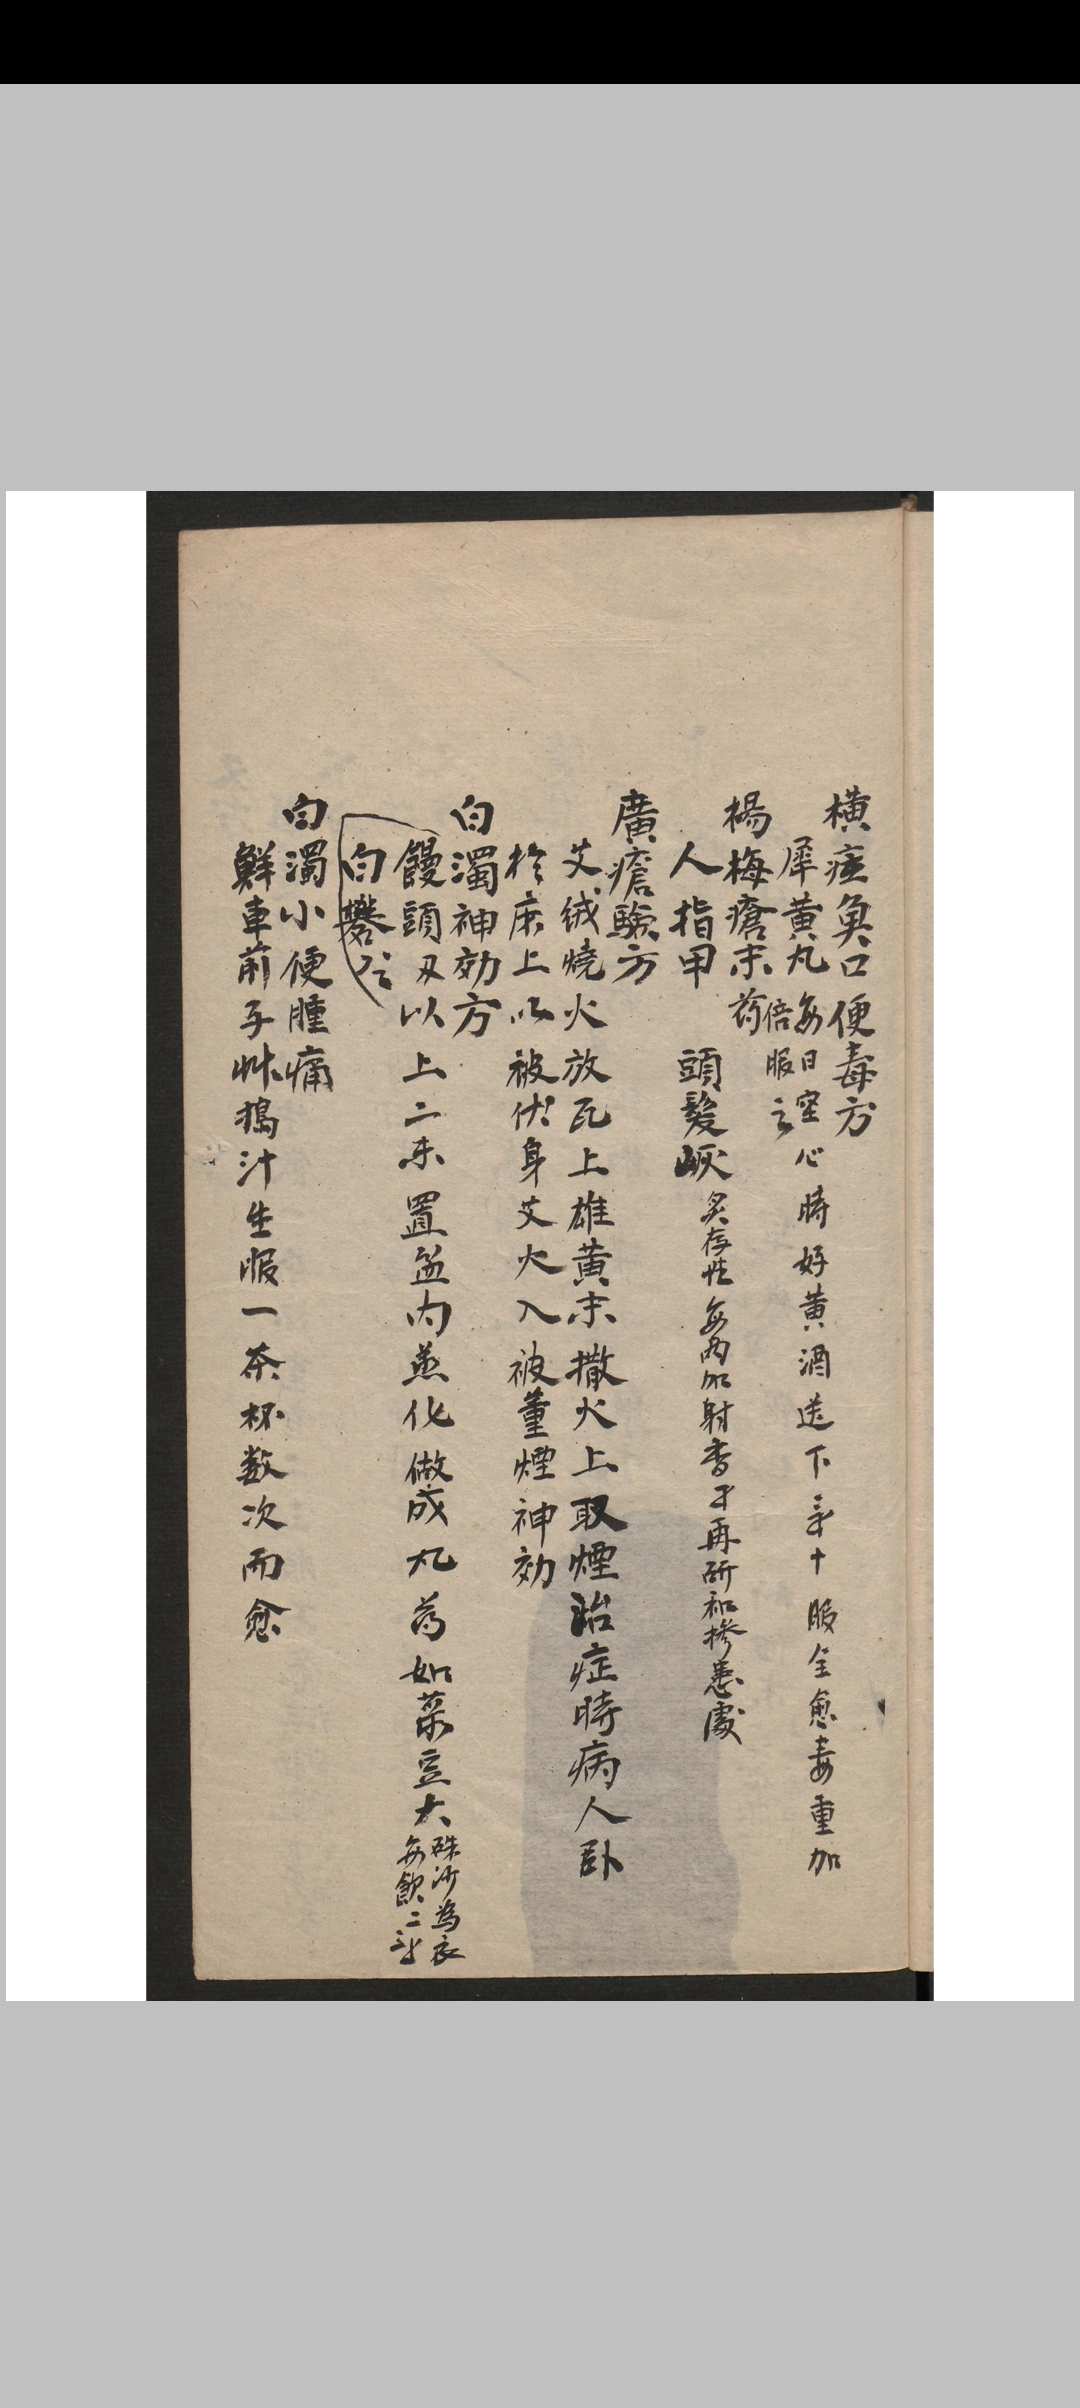 橫痃魚口便毒方
犀黃丸 每日空心時好黃酒送下 十服全愈毒重加
倍服之
楊梅瘡末葯
人指甲 頭髮 炙存性每兩加射香 再研和摻患處
廣瘡驗方
艾絨燒火放瓦上雄黃末撒火上取煙治症時病人卧
於床上以被伏身艾火入被薰煙神効
白濁神効方
饅頭 以上二未置盆内蒸化做成丸葯如菉豆大 硃沙為衣
每飲二
白礬
白濁小便腫痛
鮮車前子艸搗汁生服一茶杯数次而愈